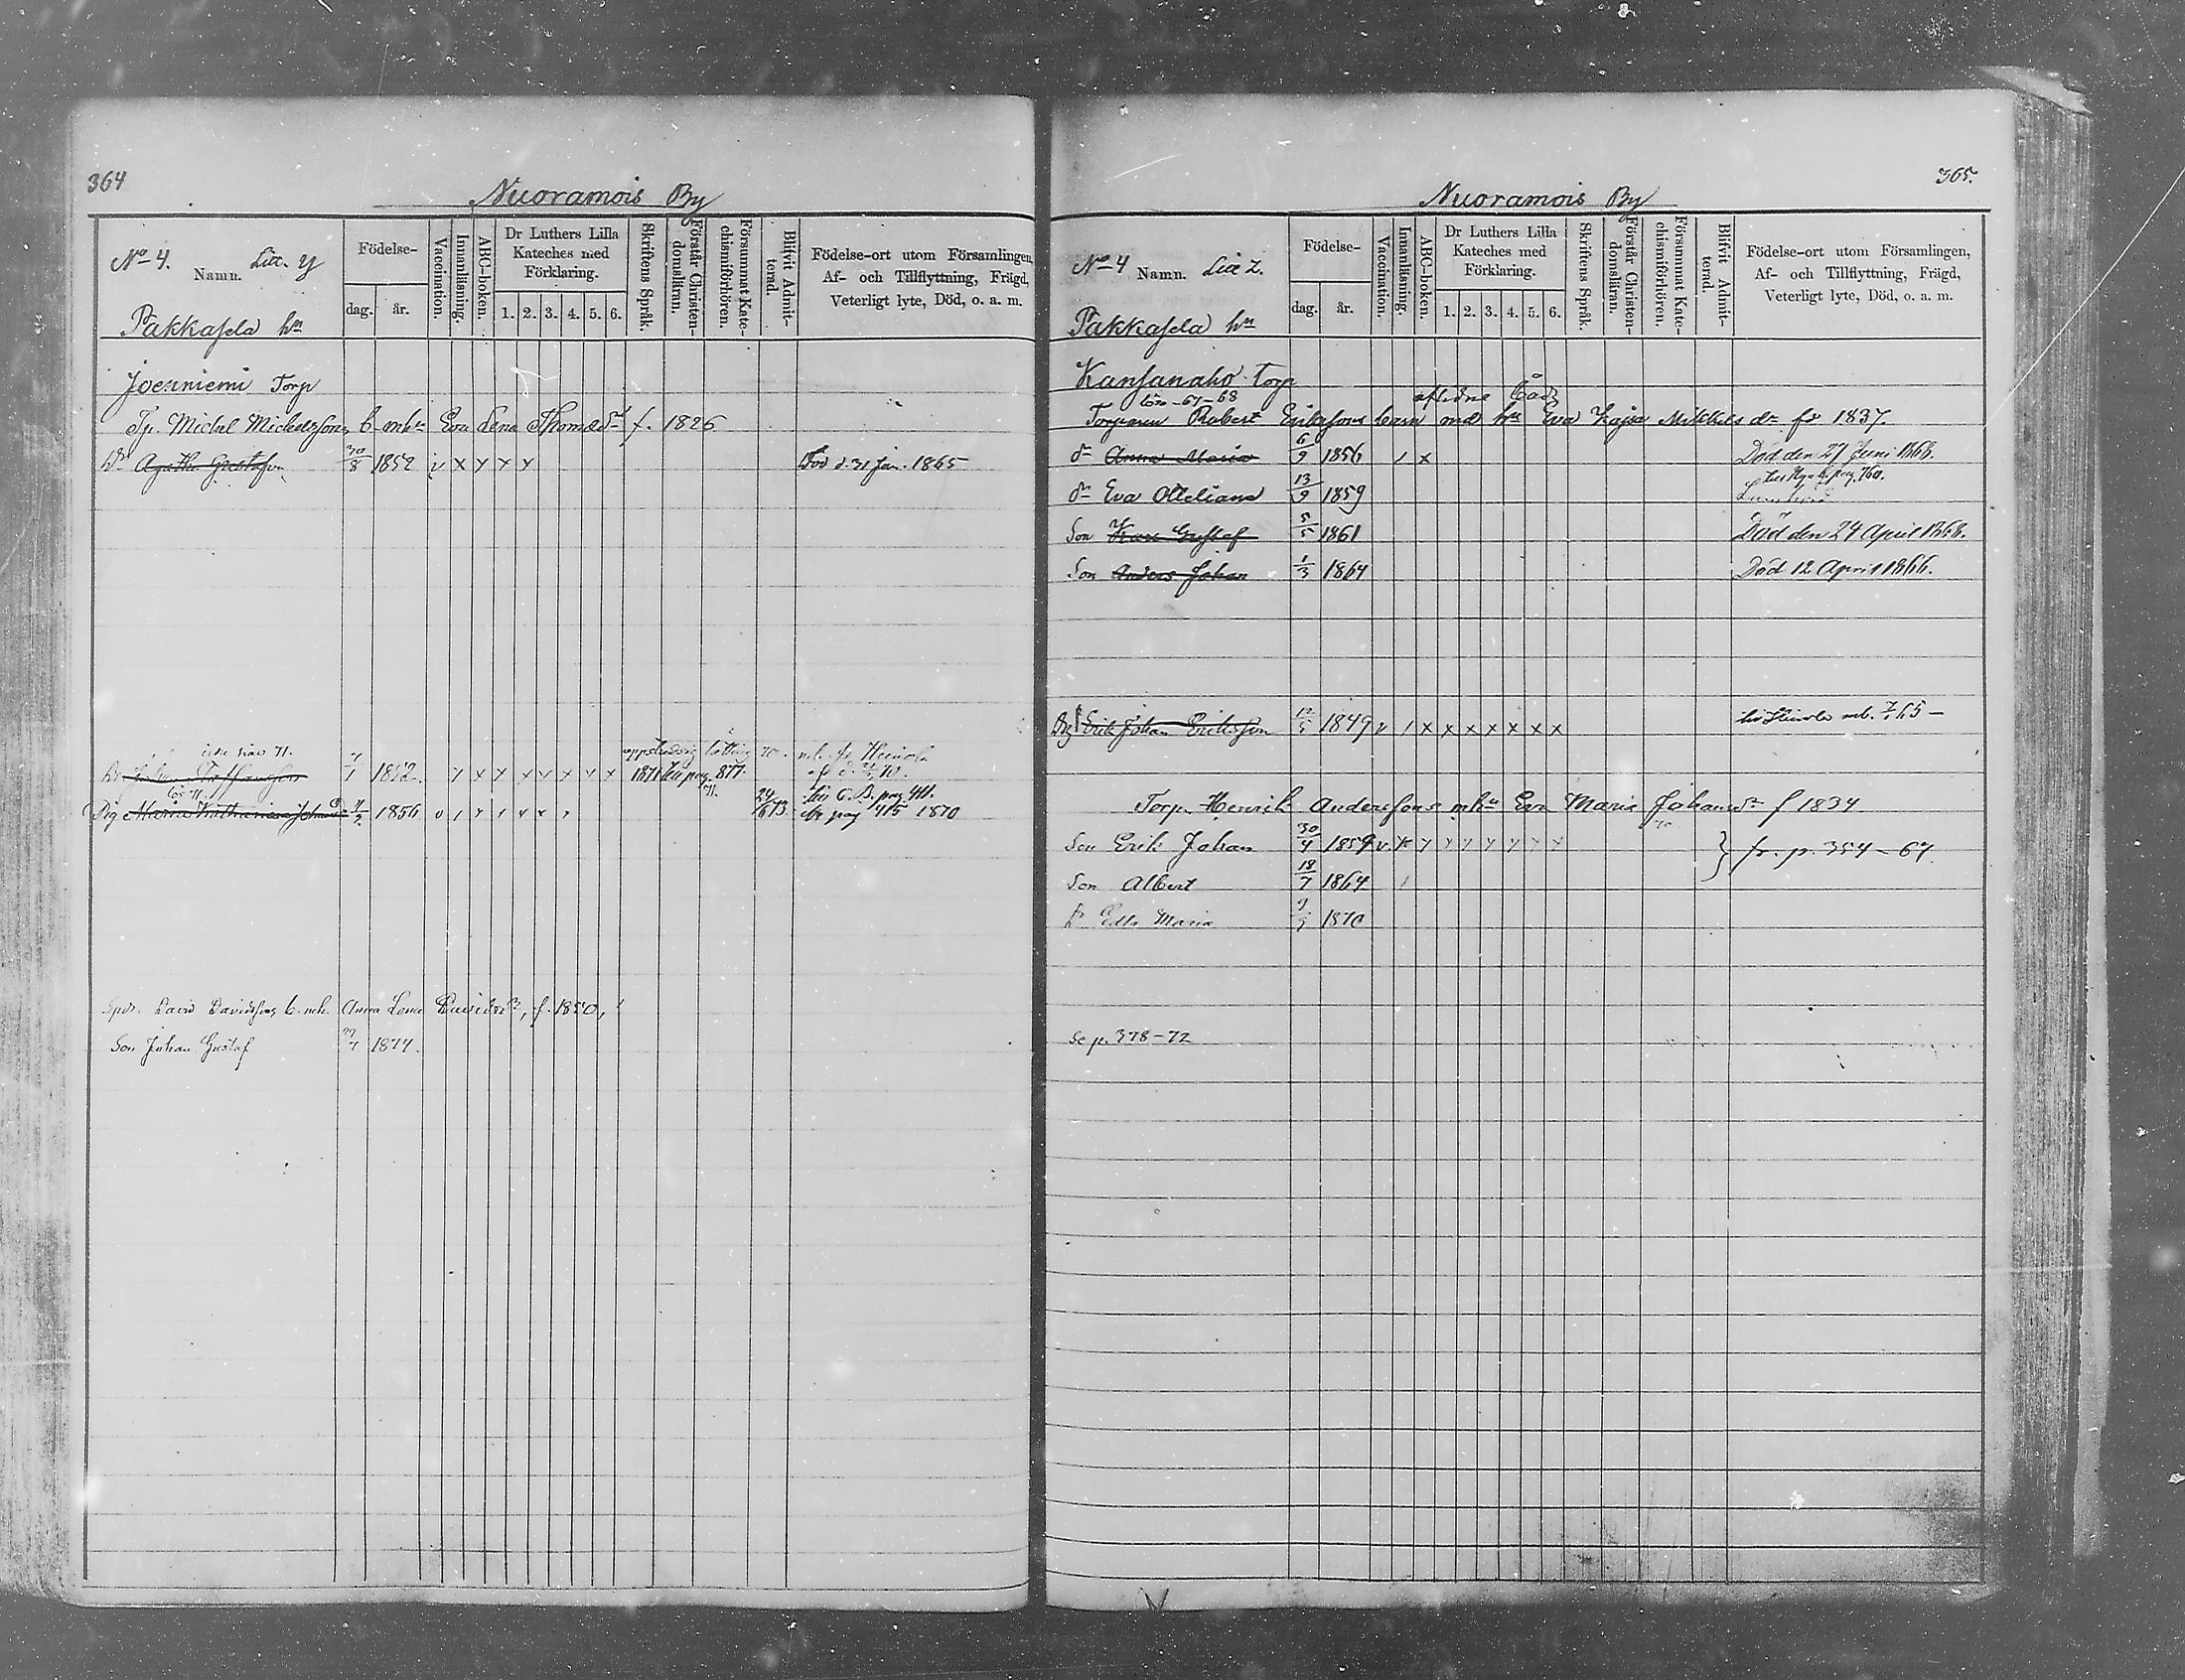 364
Nuoramois By
No 4. Namn. Litt. Y
Pakkasela hn
Födelse-
dag. år.
Vaccination.
Innanläsning.
ABC-boken.
Dr Luthers Lilla
Kateches med
Förklaring.
1. 2. 3. 4. 5. 6.
Skriftens Språk.
Förstår Christen-
domsläran.
Försummat Kate-
chismiförhören.
Blifvit Admit-
terad.
Födelse-ort utom Församlingen,
Af- och Tillflyttning, Frägd,
Veterligt lyte, Död, o. a. m.
Joenniemi Torp
Tp. Michel Michelssons b. mhu Eva Lena Thomasdr f. 1826
Dr Agatha Gustafva 30/8 1852 v x y y y Död d. 31 Jan. 1865
71.
Johan Staffansson 7/1 1852. y x y x x y x y x 1871 pag. 877. Heinola
70.
Pig Maria Katharina 1856 24/6 73. C. B. pag 411.
pag 415 1870
David Davidssons b. mh. Anna Lena Davidsdr, f. 1850,
Son Johan Gustaf 1874.
365.
Nuoramois By
No 4 Namn. Litt Z.
Pakkasela hn
Födelse-
dag. år.
Vaccination.
Innanläsning.
ABC-boken.
Dr Luthers Lilla
Kateches med
Förklaring.
1. 2. 3. 4. 5. 6.
Skriftens Språk.
Förstår Christen-
domsläran.
Försummat Kate-
chismiförhören.
Blifvit Admit-
terad.
Födelse-ort utom Församlingen,
Af- och Tillflyttning, Frägd,
Veterligt lyte, Död, o. a. m.
Kansanaho Torp
-67-68 aflidne
Torparen Robert Erikssons barn med hu Eva Kajsa Mikkels dr fö 1837.
dr Anna Maria 6/9 1856 / x Död den 27 Juni 1868.
dr Eva Ottiliana 13/9 1859 pag. 760.
Son Karl Gustaf 5/5 1861 Död den 24 April 1868.
Son Anders Johan 1/3 1864 Död 12 April 1866.
Erik Johan Eriksson 12/5 1849 v / x x x x x x x Heinola mb. 65 -
Torp. Henrik Anderssons mhu Eva Maria Johansdr f 1834
Son Erik Johan 30/4 1859 v. x y y y y y y y } fr. p. 354 - 67.
Son Albert 18/7 1864 /
Dr Edla Maria 1870
Se p. 378-72